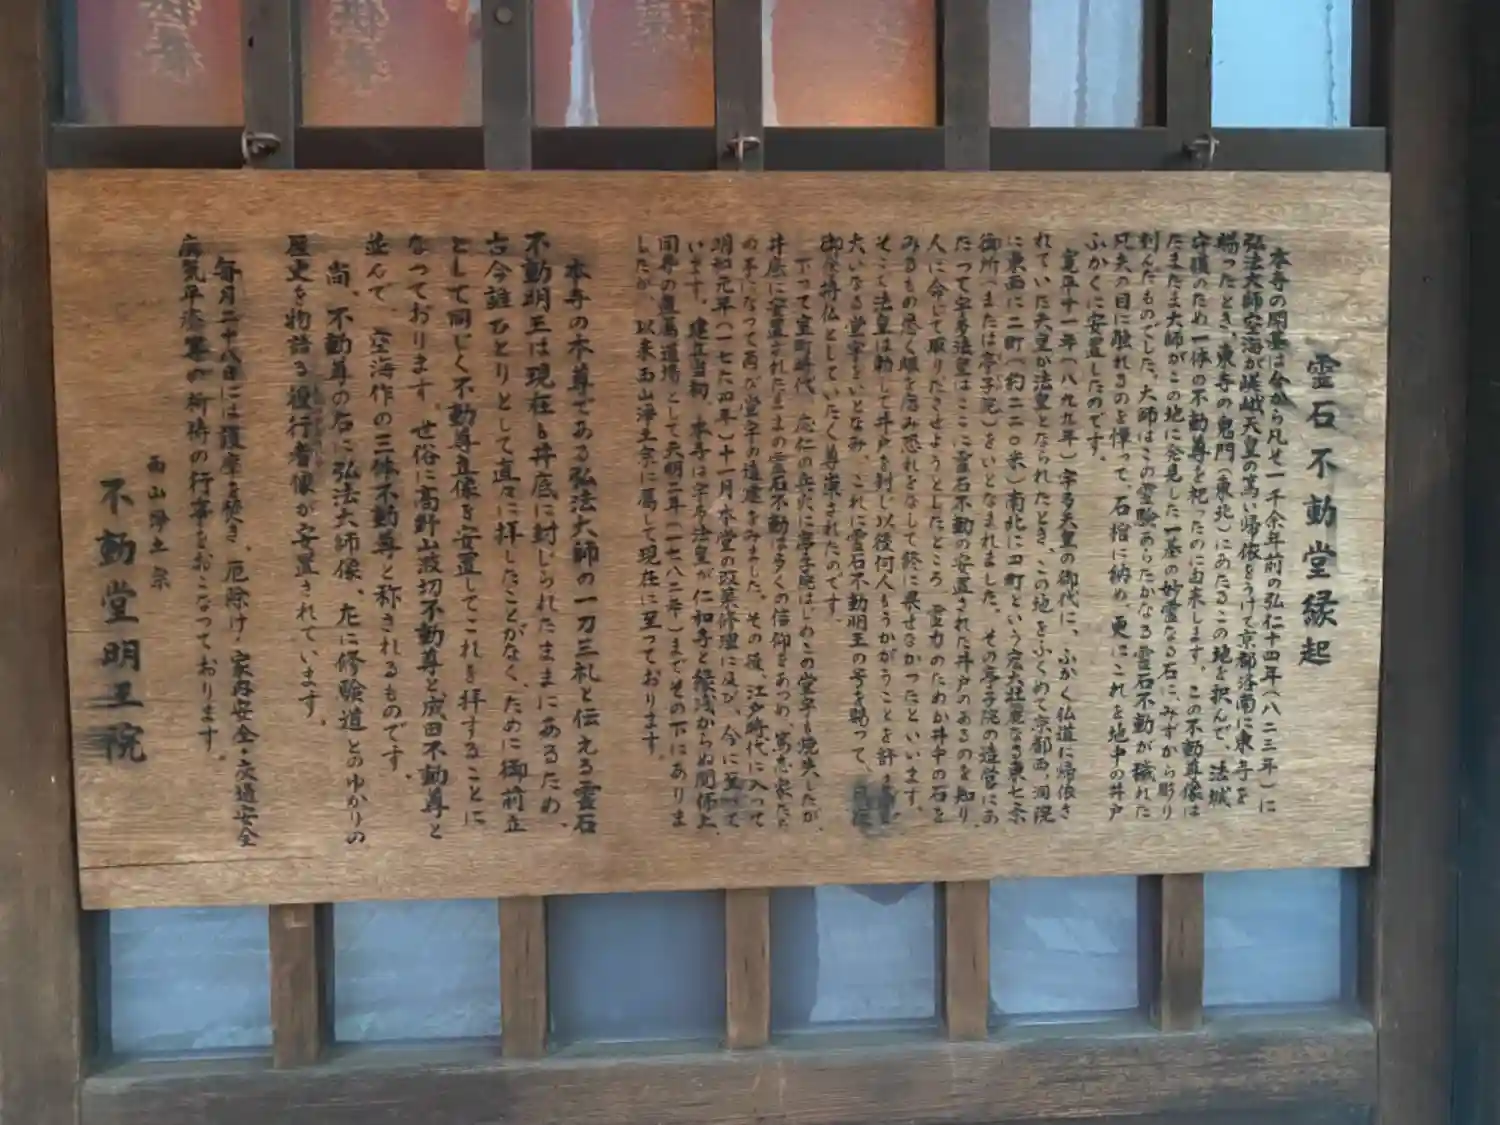 霊石不動堂縁起
本寺の開基は今から凡そ一千余年前の弘仁十四年(八二三年)に
弘法大師空海が嵯峨天皇の篤い帰依をうけて京都洛南に東寺を
賜ったとき、東寺の鬼門(東北)にあたるこの地を択んで、法城
守護のため一体の不動尊を祀ったのに由来します。この不動尊像は
たまたま大師がこの地に発見した一基の妙霊なる石に、みずから彫り
刻んだものでした。大師はこの霊験あらたかなる霊石不動が穢れた
凡夫の目に触れるのを憚って、石棺に納め、更にこれを地中の井戸
ふかくに安置したのです。
寛平十一年(八九九年)宇多天皇の御代に、ふかく仏道に帰依さ
れていた天皇が法皇となられたとき、この地をふくめて京都西洞院
に東西に二町(約二二〇米)南北に四町という広大壮麗なる東七条
御所(または亭子院)をいとなまれました。その亭子院の造営にあ
たって宇多法皇はここに霊石不動の安置された井戸のあるのを知り、
人に命じて取りださせようとしたところ、霊力のためか井中の石を
みるもの悉く眼を痛み恐れをなして終に果せなかったといいます。
そこで法皇は勅して井戸を封じ以後何人もうかがうことを許さず、
大いなる堂宇をいとなみ、これに霊石不動明王の号を賜って、
御後持仏としていたく尊崇されたのです。
下って室町時代、応仁の兵火に亭子院はじめこの堂宇も焼失したが、
井底に安置されたままの霊石不動は多くの信仰をあつめ、篤志家たち
の手になって再び堂宇の造建をみました。その後、江戸時代に入って
明和元年(一七六四年)十一月本堂の改築修理に及び、今に至って
います。建立当初、本寺は宇多法皇が仁和寺と縁浅からぬ関係上、
同寺の直属道場として天明二年(一七八二年)までその下にありま
したが、以来西山浄土宗に属して現在に至っております。
本寺の本尊である弘法大師の一刀三礼と伝える霊石
不動明王は現在も井底に封じられたままにあるため、
古今誰ひとりとして直々に拝したことがなく、ために御前立
として同じく不動尊立像を安置してこれを拝することに
なっております。世俗に高野山波切不動尊と成田不動尊と
並んで、空海作の三体不動尊と称されるものです。
尚、不動尊の右に弘法大師像、左に修験道とのゆかりの
歴史を物語る役行者像が安置されています。
毎月二十八日には護摩を焚き、厄除け・家内安全・交通安全
病気平癒等の祈祷の行事をおこなっております。
西山浄土宗
不動堂明王院